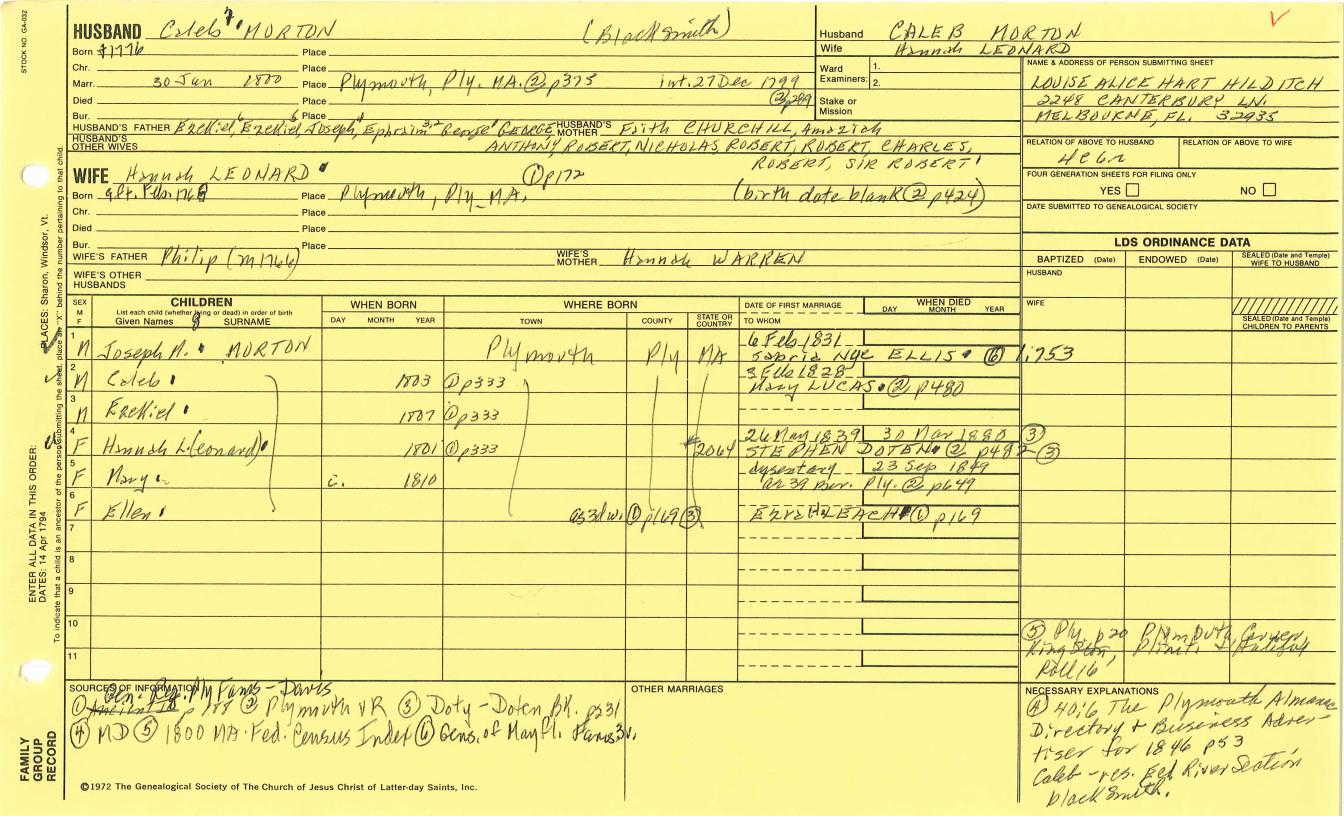 STOCK NO. GA-032
HUSBAND Caleb MORTON (Blacksmith)
Born 1776 Place
Chr. Place
Marr. 30 Jun 1800 Place Plymouth, Ply. MA. ② p375 int. 27 Dec 1799
Died Place ② p289
Bur. Place
HUSBAND'S FATHER Ezekiel, Ezekiel, Joseph, Ephraim, George, GEORGE, HUSBAND'S MOTHER Faith CHURCHILL, Amaziah
HUSBAND'S OTHER WIVES ANTHONY, ROBERT, NICHOLAS, ROBERT, ROBERT, CHARLES,
ROBERT, SIR ROBERT
Husband CALEB MORTON
Wife Hannah LEONARD
Ward Examiners: 1.
2.
Stake or Mission
NAME & ADDRESS OF PERSON SUBMITTING SHEET
LOUISE ALICE HART HILDITCH
2248 CANTERBURY LN.
MELBOURNE, FL. 32935
RELATION OF ABOVE TO HUSBAND RELATION OF ABOVE TO WIFE
4c6r
FOUR GENERATION SHEETS FOR FILING ONLY
YES NO
DATE SUBMITTED TO GENEALOGICAL SOCIETY
WIFE Hannah LEONARD ① p172
Born aft. Feb. Place Plymouth, Ply MA. (birth date blank ② p424)
Chr. Place
Died Place
Bur. Place
WIFE'S FATHER Philip (m1766) WIFE'S MOTHER Hannah WARREN
WIFE'S OTHER HUSBANDS
LDS ORDINANCE DATA
BAPTIZED (Date) ENDOWED (Date) SEALED (Date and Temple) WIFE TO HUSBAND
HUSBAND
WIFE
SEALED (Date and Temple) CHILDREN TO PARENTS
SEX M F CHILDREN WHEN BORN WHERE BORN DATE OF FIRST MARRIAGE WHEN DIED
List each child (whether living or dead) in order of birth
Given Names SURNAME DAY MONTH YEAR TOWN COUNTY STATE OR COUNTRY TO WHOM DAY MONTH YEAR
1 M Joseph M. MORTON Plymouth Ply MA 6 Feb 1831
Sabria Nye ELLIS ⑥ 1:753
2 M Caleb 1803 ① p333 3 Feb 1828
Mary LUCAS ② p480
3 M Ezekiel 1807 ① p333
4 F Hannah L(eonard) 1801 ① p333 2064 26 May 1839 30 Mar 1880 ③
STEPHEN DOTEN ② p482 ③
5 F Mary c. 1810 dysentary 23 Sep 1849
ae 39 Ply. ② p649
6 F Ellen as 3d w. ① p169 ③ Ezra LEACH ① p169
7
8
9
10
11
⑤ Ply. p20 Plymouth, Carver
Kingston, Plimt. & Halifax
Roll 16
SOURCES OF INFORMATION
Gen. Reg. Ply Fams - Davis
① p188 ② Plymouth VR ③ Doty-Doten Bk. p231
④ MD ⑤ 1800 MA. Fed. Census Index ⑥ Gens. of Mayfl. Fams 3v.
OTHER MARRIAGES
NECESSARY EXPLANATIONS
④ 40:6 The Plymouth Almanac
Directory & Business Adver-
tiser for 1846 p53
Caleb - res. Eel River Section
blacksmith.
©1972 The Genealogical Society of The Church of Jesus Christ of Latter-day Saints, Inc.
FAMILY GROUP RECORD
ENTER ALL DATA IN THIS ORDER:
DATES: 14 Apr 1794
PLACES: Sharon, Windsor, Vt.
To indicate that a child is an ancestor of the person submitting the sheet, place an "X" behind the number pertaining to that child.